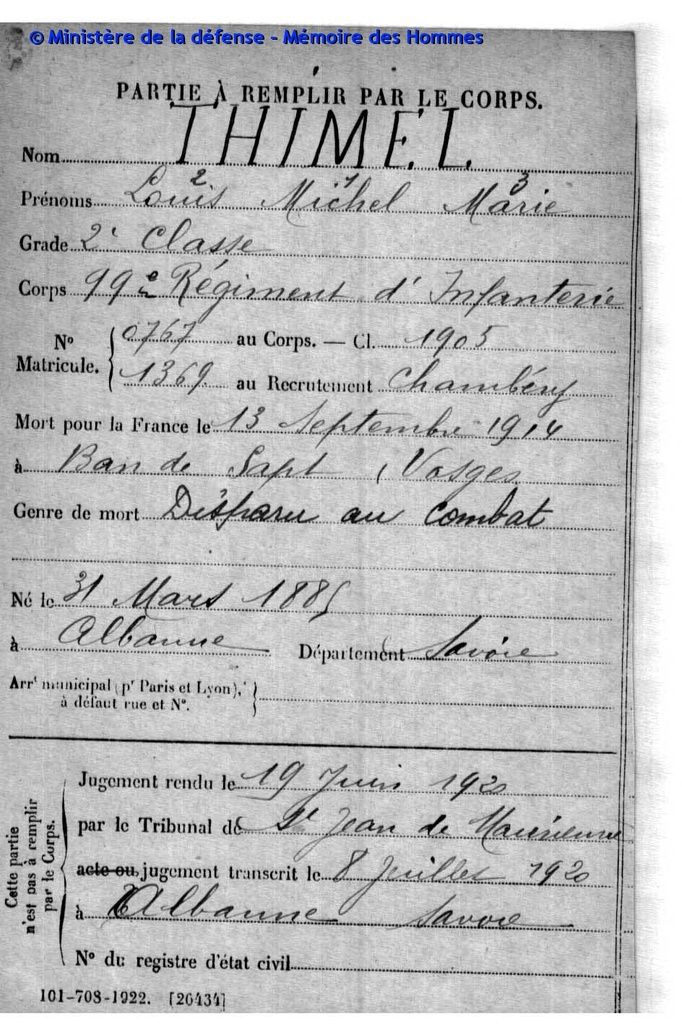 © Ministère de la défense - Mémoire des Hommes
PARTIE À REMPLIR PAR LE CORPS.
Nom THIMEL
2 1 3
Prénoms Louis Michel Marie
Grade 2e Classe
Corps 99e Régiment d'Infanterie
No Matricule. { 0767 au Corps. — Cl. 1905
1369 au Recrutement Chambéry
Mort pour la France le 13 Septembre 1914
à Ban de Sapt, Vosges
Genre de mort Disparu au combat
Né le 31 Mars 1885
à Albanne Département Savoie
Arrt municipal (pr Paris et Lyon),
à défaut rue et No.
Cette partie n'est pas à remplir par le Corps.
Jugement rendu le 19 Juin 1920
par le Tribunal de St Jean de Maurienne
acte ou jugement transcrit le 8 Juillet 1920
à Albanne Savoie
No du registre d'état civil
101-708-1922. [26434]